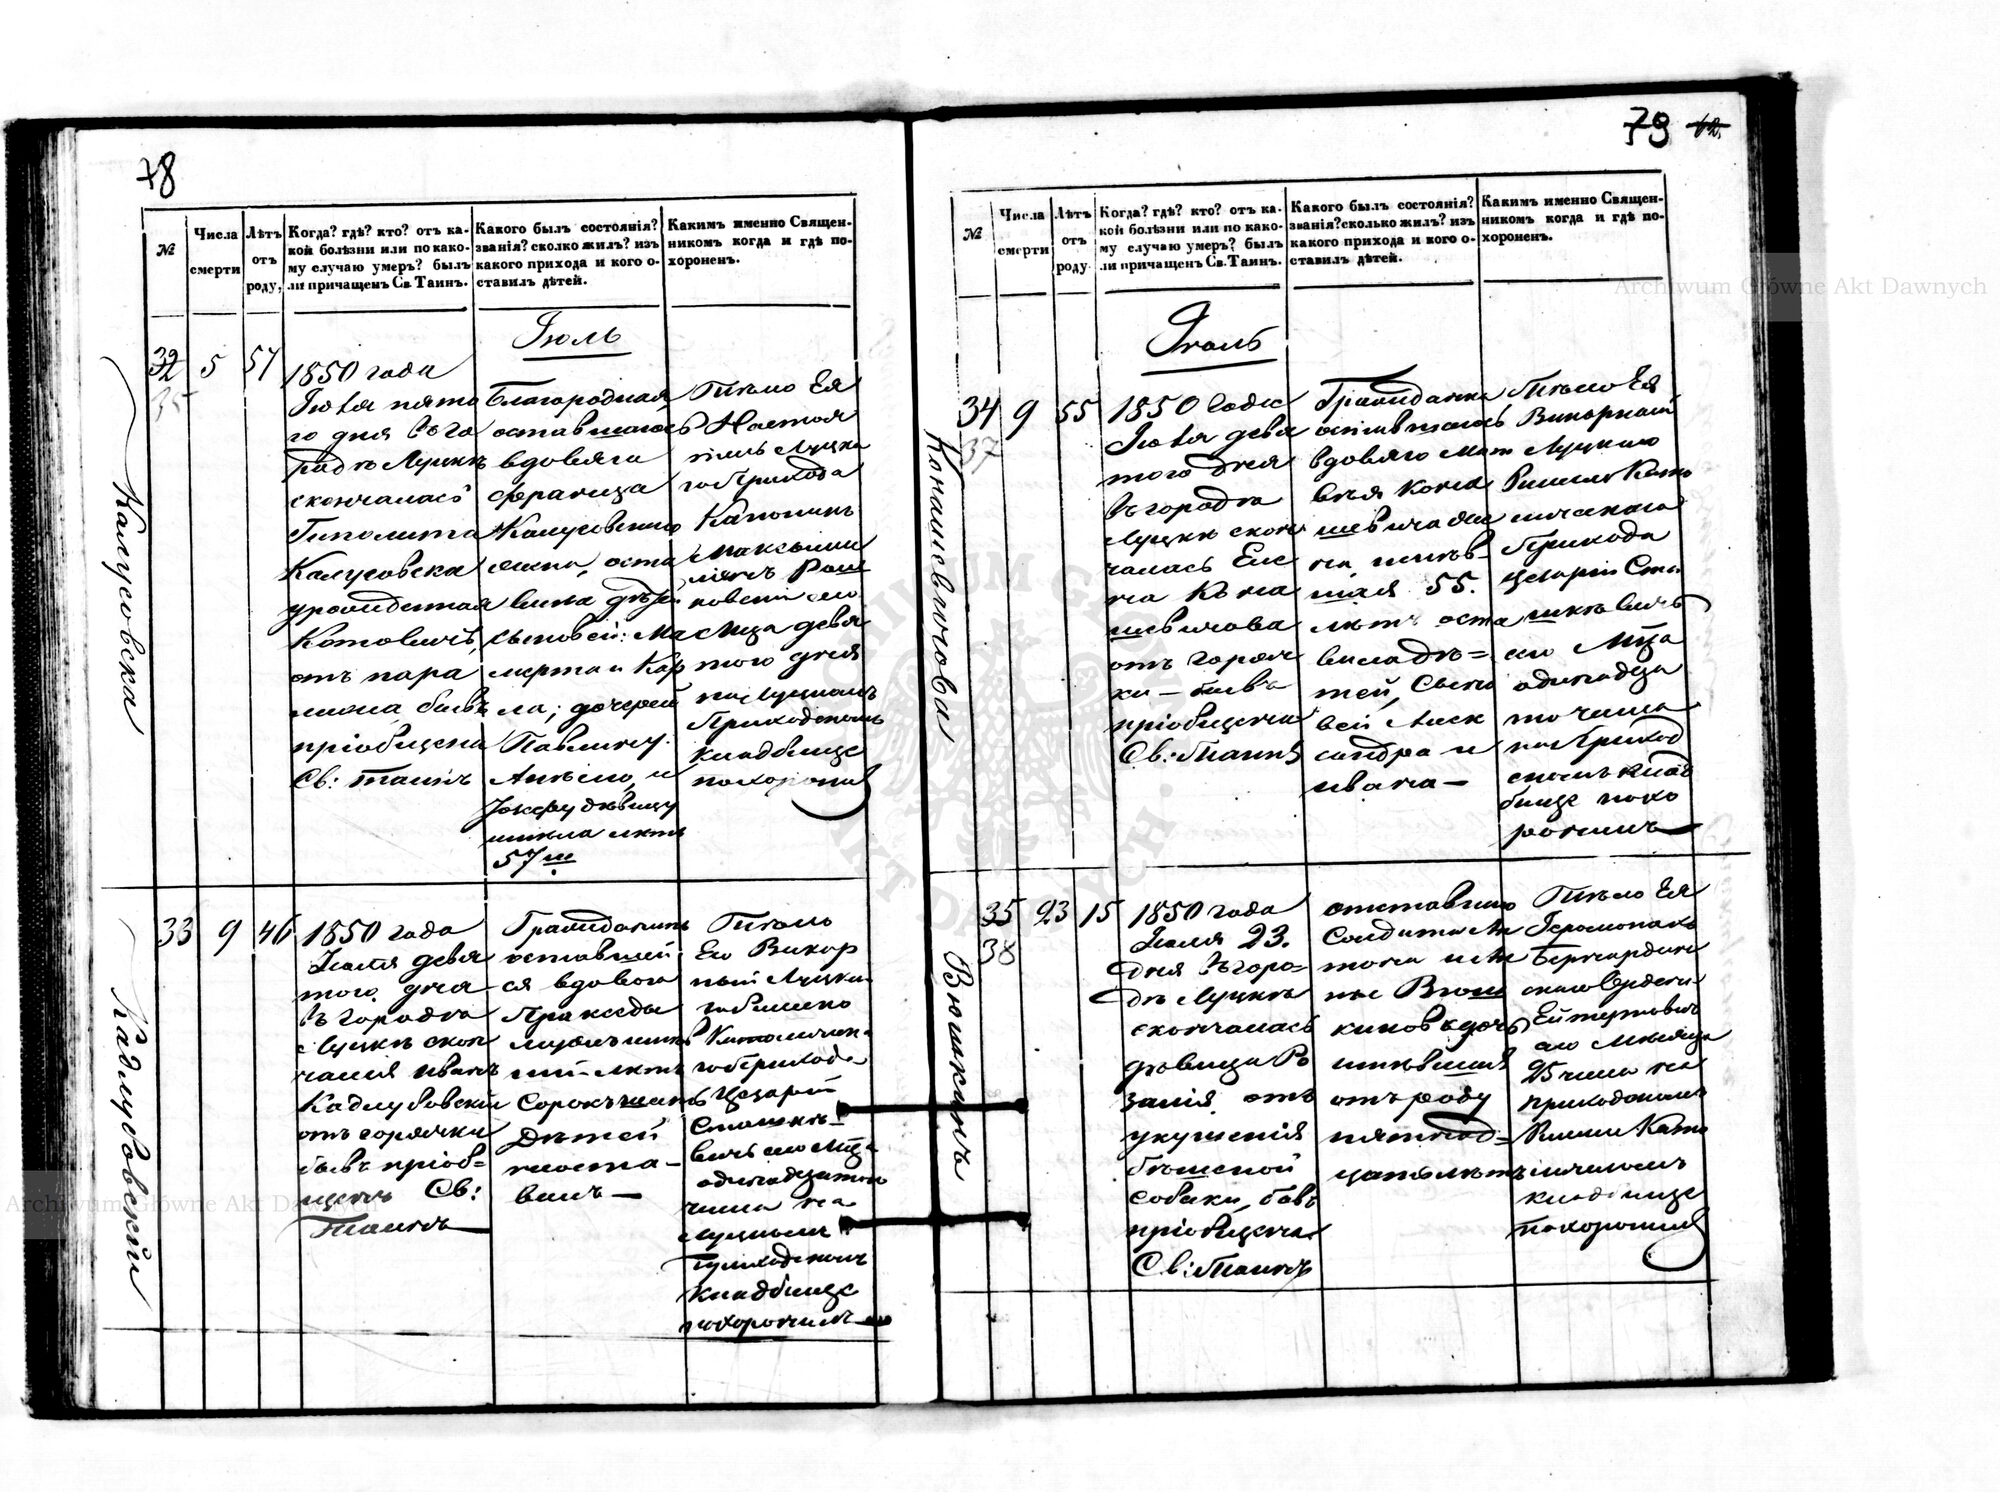 78
№
Числа смерти
Лѣтъ отъ роду,
Когда? гдѣ? кто? отъ ка-
кой болѣзни или по како-
му случаю умеръ? былъ
ли причащенъ Св. Таинъ.
Какого былъ состоянія?
званія? сколко жилъ? изъ
какого прихода и кого о-
ставилъ дѣтей.
Каким именно Священ-
никомъ когда и гдѣ по-
хороненъ.
Іюль
Калусовска
32
35
5
57
1850 года
Іюля пято
го дня въ го
родѣ Луцкѣ
скончалась
Гиполита
Калусовска
урожденная
Котовичъ,
отъ пара
лижа, бывъ
пріобщена
Св: таинъ
Благородная,
оставшаяся
вдовъяго
Францеза
Калусовскаго
жена, оста
вила дѣтей
сыновей:
и Кар
ла; дочерей
Павлину
Анѣлю, и
Юзефу дѣвицу
имѣла лѣтъ
57 ш
Тѣло Ея
Настоя
тель Луцка
го Прихода
Каноникъ
Максыми
ліянъ
сего
М-ца девя
того дня
на Луцкомъ
Приходскомъ
кладбище
похоронилъ
Кадлубовскій
33
9
46
1850 года
Іюля девя
того дня
въ городѣ
Луцкѣ скон
чался Иванъ
Кадлубовскій
отъ горячки
бывъ пріоб=
щенъ Св:
Таинъ
Гражданинъ
оставшей
ся вдовою
Праксéды
мужъ имѣв
шій лѣтъ
сорокъ шесть
Дѣтей
неоста-
вилъ
Тѣло
Его Викар
ный Луцка
го Римско
Католическа
го Прихода
Цезарій
Сташкѣ-
вичъ сего М-ца
одинадцатого
числа на
Луцкомъ
Приходскомъ
кладбище
похоронилъ
79 42.
№
Числа смерти
Лѣтъ отъ роду
Когда? гдѣ? кто? отъ ка-
кой болѣзни или по како-
му случаю умеръ? былъ
ли причащенъ Св. Таинъ.
Какого былъ состоянія?
званія? сколько жилъ? изъ
какого прихода и кого о-
ставилъ дѣтей.
Каким именно Священ-
никомъ когда и гдѣ по-
хороненъ.
Іюль
Конашевичова
34
37
9
55
1850 Года
Іюля девя
того дня
въ городѣ
Луцкѣ скон
чалась Еле
на Кона
шевичова
отъ горяч
ки - бывъ
пріобщена
Св: Таинъ
Гражданка,
оставшаяся
вдовъяго Мат
вѣя Кона
шевича же
на, имѣв-
шая 55.
лѣтъ оста
вила дѣ=
тей, Сыно
вей Алек
сандра и
Ивана-
Тѣло Ея
Викарный
Луцкаго
Римско Като
лическаго
Прихода
Цезарій Ста
шкѣвичъ
сего М-ца
одинадца
то числа
на Приход
скомъ клад
бище похо
ронилъ
Вюшкинъ
35
38
23
15
1850 года
Іюля 23.
дня въ горо=
дѣ Луцкѣ
скончалась
дѣвица Ро
залія, отъ
укушенія
бѣшеной
собаки, бывъ
пріобщена
Св: Таинъ
отставнаго
Солдата Ан
тона и Ан
ны
дочь
имѣвшая
отъ роду
пятнад=
цать лѣтъ
Тѣло Ея
Іеромонахъ
Бернардин
скаго Ордена
сего Мѣсяца
25 числа на
приходскомъ
Римско Като
лическомъ
кладбище
похоронилъ
Archiwum Główne Akt Dawnych
Archiwum Główne Akt Dawnych